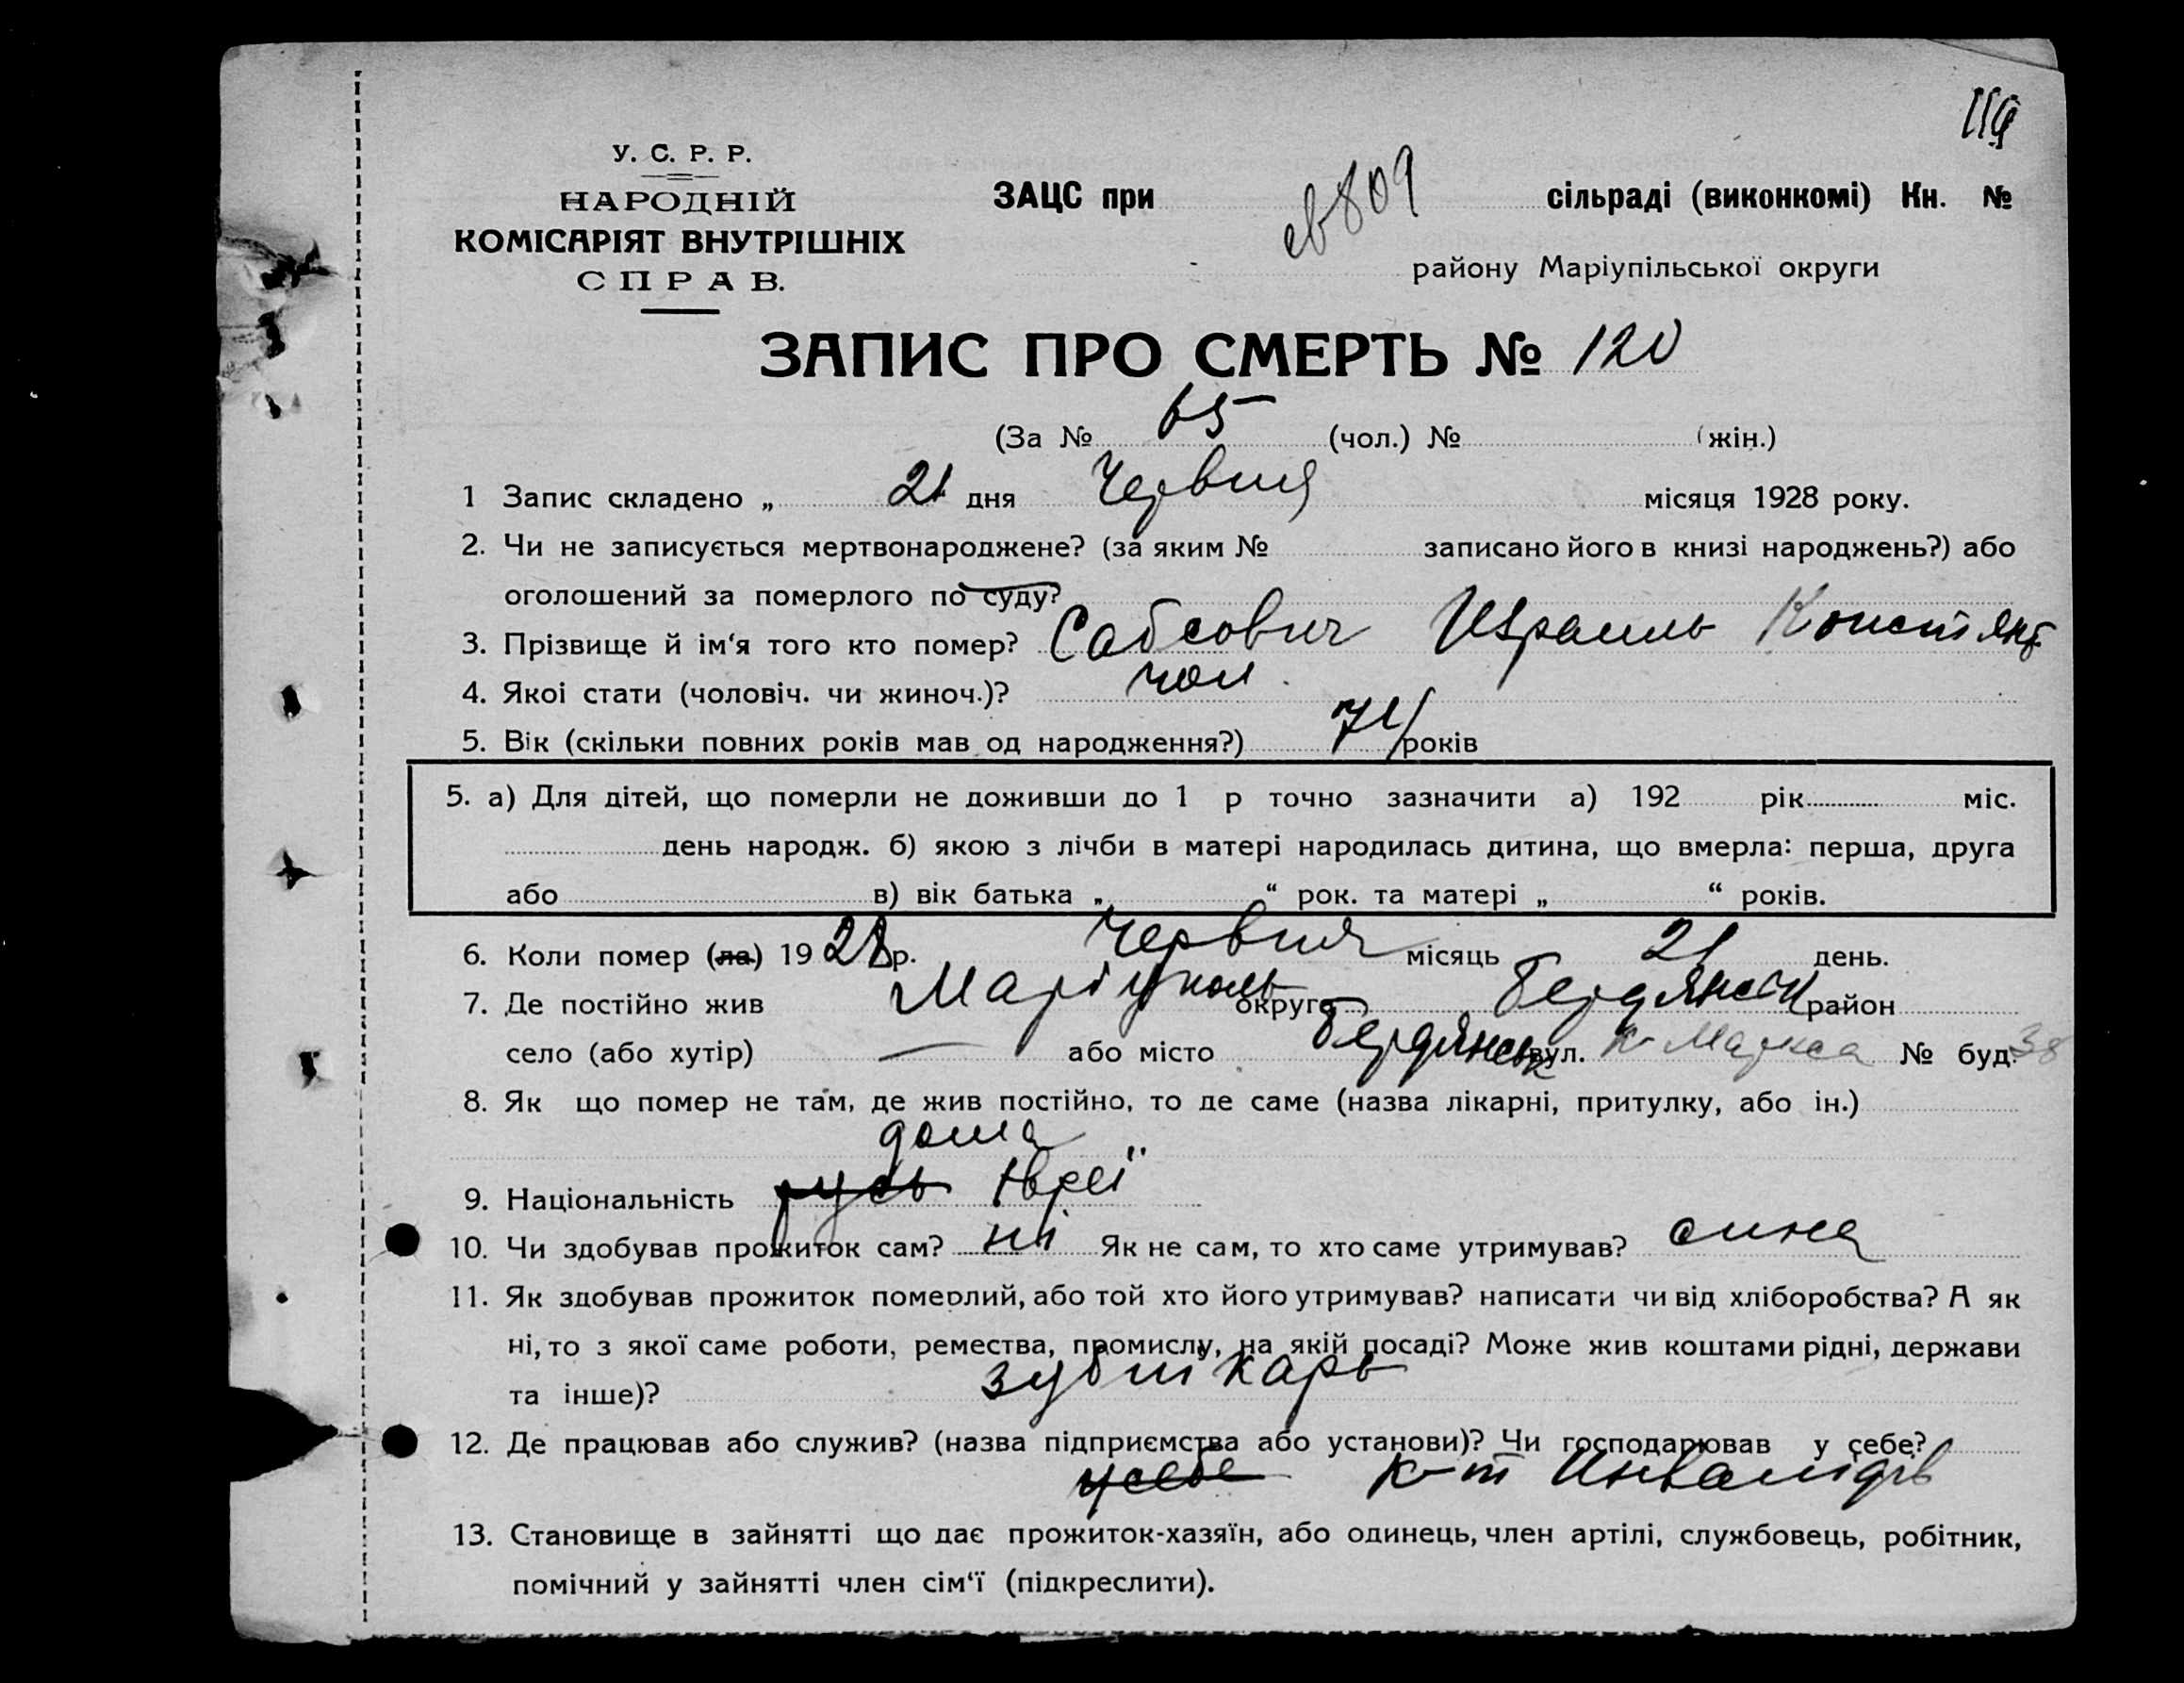 119
У. С. Р. Р.
НАРОДНІЙ
КОМІСАРІЯТ ВНУТРІШНІХ
СПРАВ.
ЗАЦС при св 809 сільраді (виконкомі) Кн. №
району Маріупільської округи
ЗАПИС ПРО СМЕРТЬ № 120
(За № 65 (чол.) № (жін.)
1 Запис складено „ 21 дня Червня місяця 1928 року.
2. Чи не записується мертвонароджене? (за яким № записано його в книзі народжень?) або
оголошений за померлого по суду?
3. Прізвище й ім‘я того кто помер? Сабсович Израиль Констянт
4. Якої стати (чоловіч. чи жиноч.)? чол.
5. Вік (скільки повних років мав од народження?) 71 років
5. а) Для дітей, що померли не доживши до 1 р точно зазначити а) 192 рік міс.
день народж. б) якою з лічби в матері народилась дитина, що вмерла: перша, друга
або в) вік батька „ “ рок. та матері „ “ років.
6. Коли помер (ла) 1928 р. Червня місяць 21 день.
7. Де постійно жив Маріуполь округа Бердянськ район
село (або хутір) — або місто Бердянськ вул. К-Маркса № буд. 38
8. Як що помер не там, де жив постійно, то де саме (назва лікарні, притулку, або ін.)
дома
9. Національність русь Їврей
10. Чи здобував прожиток сам? ні Як не сам, то хто саме утримував? сина
11. Як здобував прожиток померлий, або той хто його утримував? написати чи від хліборобства? А як
ні, то з якої саме роботи, ремества, промислу, на якій посаді? Може жив коштами рідні, держави
та інше)? зубликарь
12. Де працював або служив? (назва підприємства або установи)? Чи господарював у себе?
усебе к-т Инвалідів
13. Становище в зайнятті що дає прожиток-хазяїн, або одинець, член артілі, службовець, робітник,
помічний у зайнятті член сім‘ї (підкреслити).